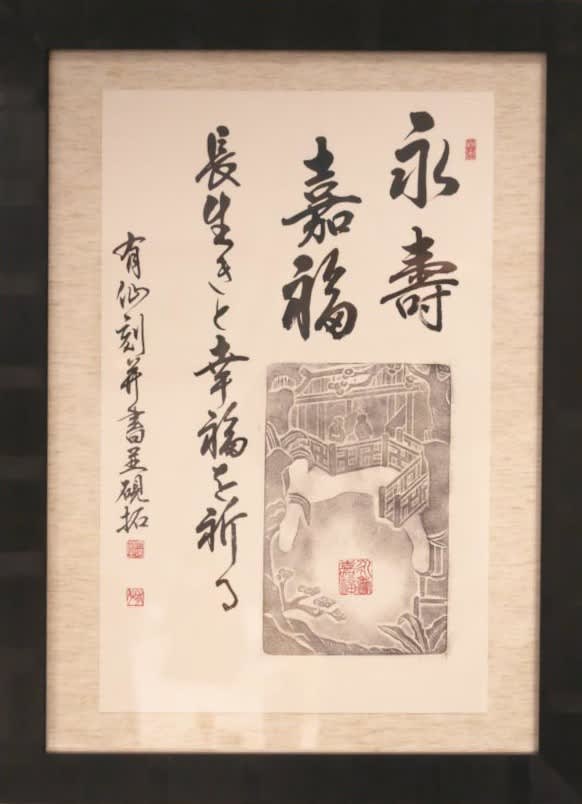 永壽
嘉福
長生きと幸福を祈る
有仙刻并書並硯拓
永壽嘉福